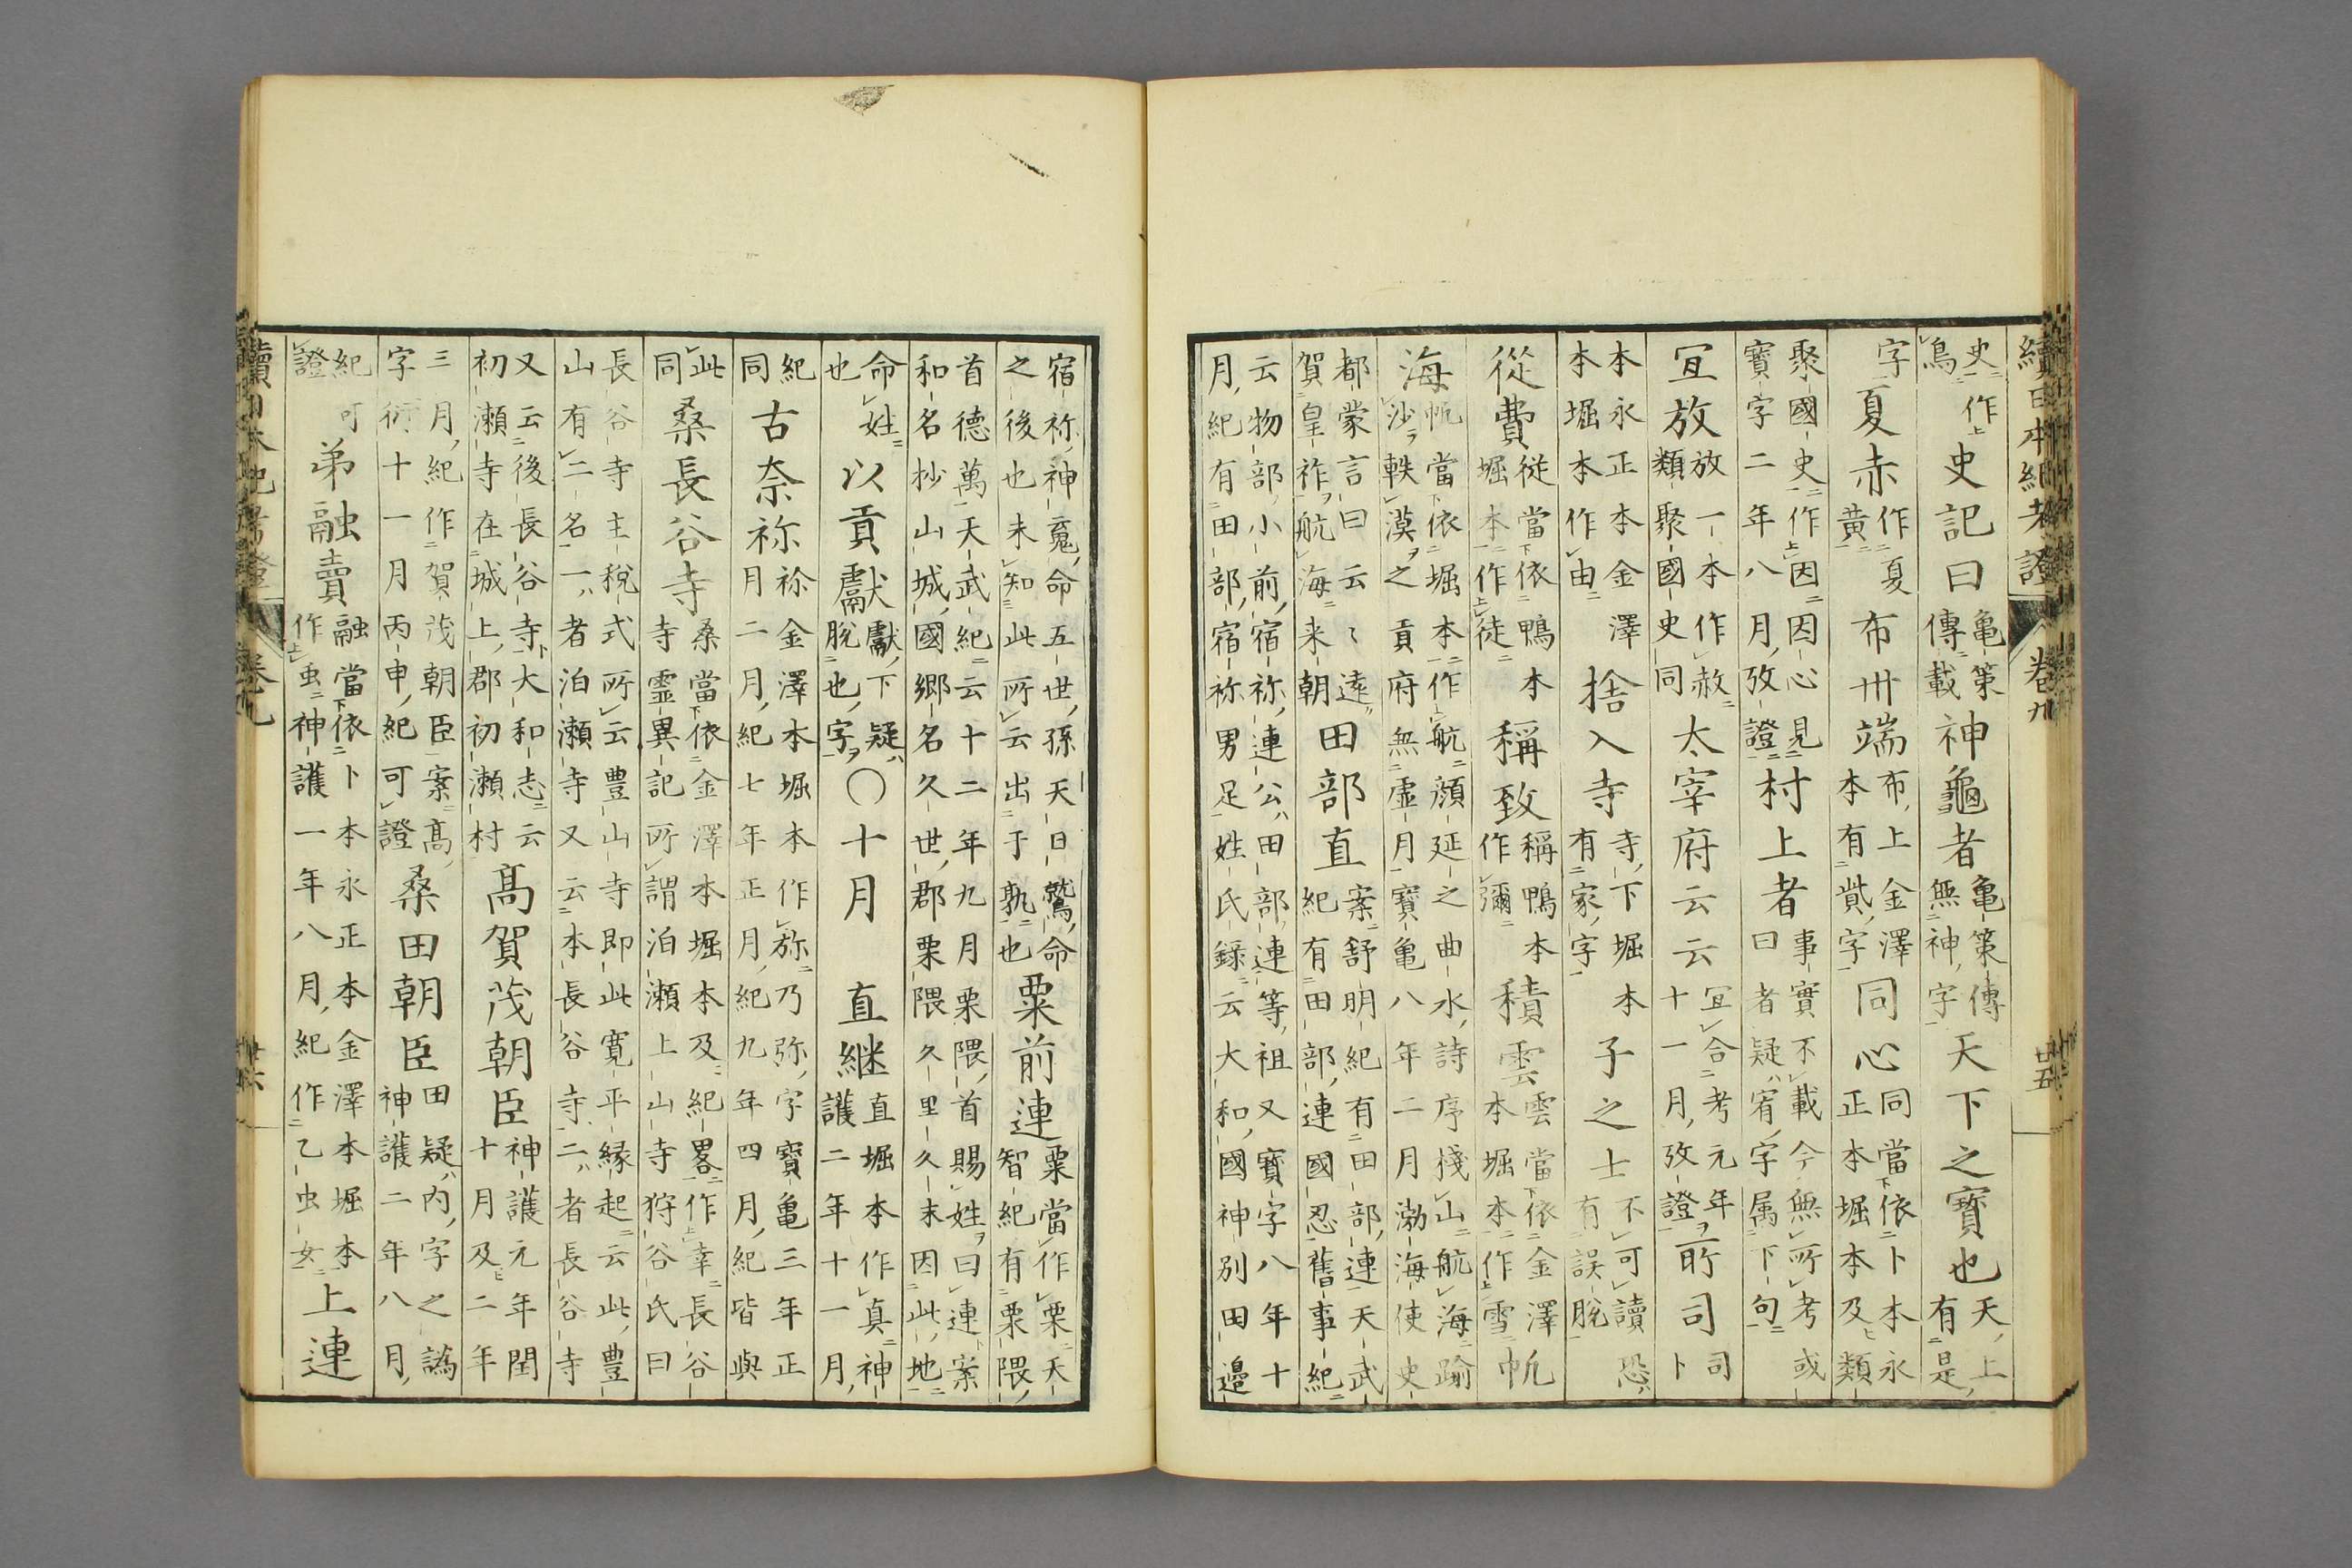 續日本紀考證 卷九 廿五
史作
鳥
史記曰
亀策
傳載
神龜者
亀策傳
無神字
天下之寶也
天上
有是
字
夏赤
作夏
黄
布卅端
布上金澤
本有貲字
同心
同當依卜本永
正本堀本及類
聚國史作因因心見
寳字二年八月攷證
村上者
事實不載今無所考或
曰者疑宥字属下句
宜放
放一本作赦
類聚國史同
太宰府云云
宜合考元年
十一月攷證
所司
司
卜
本永正本金澤
本堀本作由
捨入寺
寺下堀本
有家字
子之士
不可讀恐
有誤脱
從費
従當依鴨本
堀本作徒
稱致
稱鴨本
作彌
積雲
雲當依金澤
本堀本作雪
帆
海
帆當依堀本作航顔延之曲水詩序棧山航海踰
沙軼漠之貢府無虚月寳亀八年二月渤海使史
都蒙言曰云〻遠
賀皇祚航海来朝
田部直
案舒明紀有田部連天武
紀有田部連國忍舊事紀
云物部小前宿祢連公田部連等祖又寳字八年十
月紀有田部宿祢男足姓氏録云大和國神別田邉
宿祢神䰟命五世孫天日鷲命
之後也未知此所云出于孰也
粟前連
粟當作栗天
智紀有栗隈
首德萬天武紀云十二年九月栗隈首賜姓曰連案
和名抄山城國郷名久世郡栗隈久里久末因此地
命姓
也
以貢獻
獻下疑
脱也字
○十月
直継
直堀本作真神
護二年十一月
紀
同
古奈祢
祢金澤本堀本作弥乃弥字寳亀三年正
月二月紀七年正月紀九年四月紀皆與
此
同
桑長谷寺
桑當依金澤本堀本及紀畧作幸長谷
寺霊異記所謂泊瀬上山寺狩谷氏曰
長谷寺主税式所云豊山寺即此寛平縁起云此豊
山有二名一者泊瀬寺又云本長谷寺二者長谷寺
又云後長谷寺大和志云
初瀬寺在城上郡初瀬村
髙賀茂朝臣
神護元年閏
十月及二年
三月紀作賀茂朝臣案髙
字衍十一月丙申紀可證
桑田朝臣
田疑内字之譌
神護二年八月
紀可
證
弟融賣
融當依卜本永正本金澤本堀本
作虫神護一年八月紀作乙虫女
上連
續日本紀考證 卷九 廿六